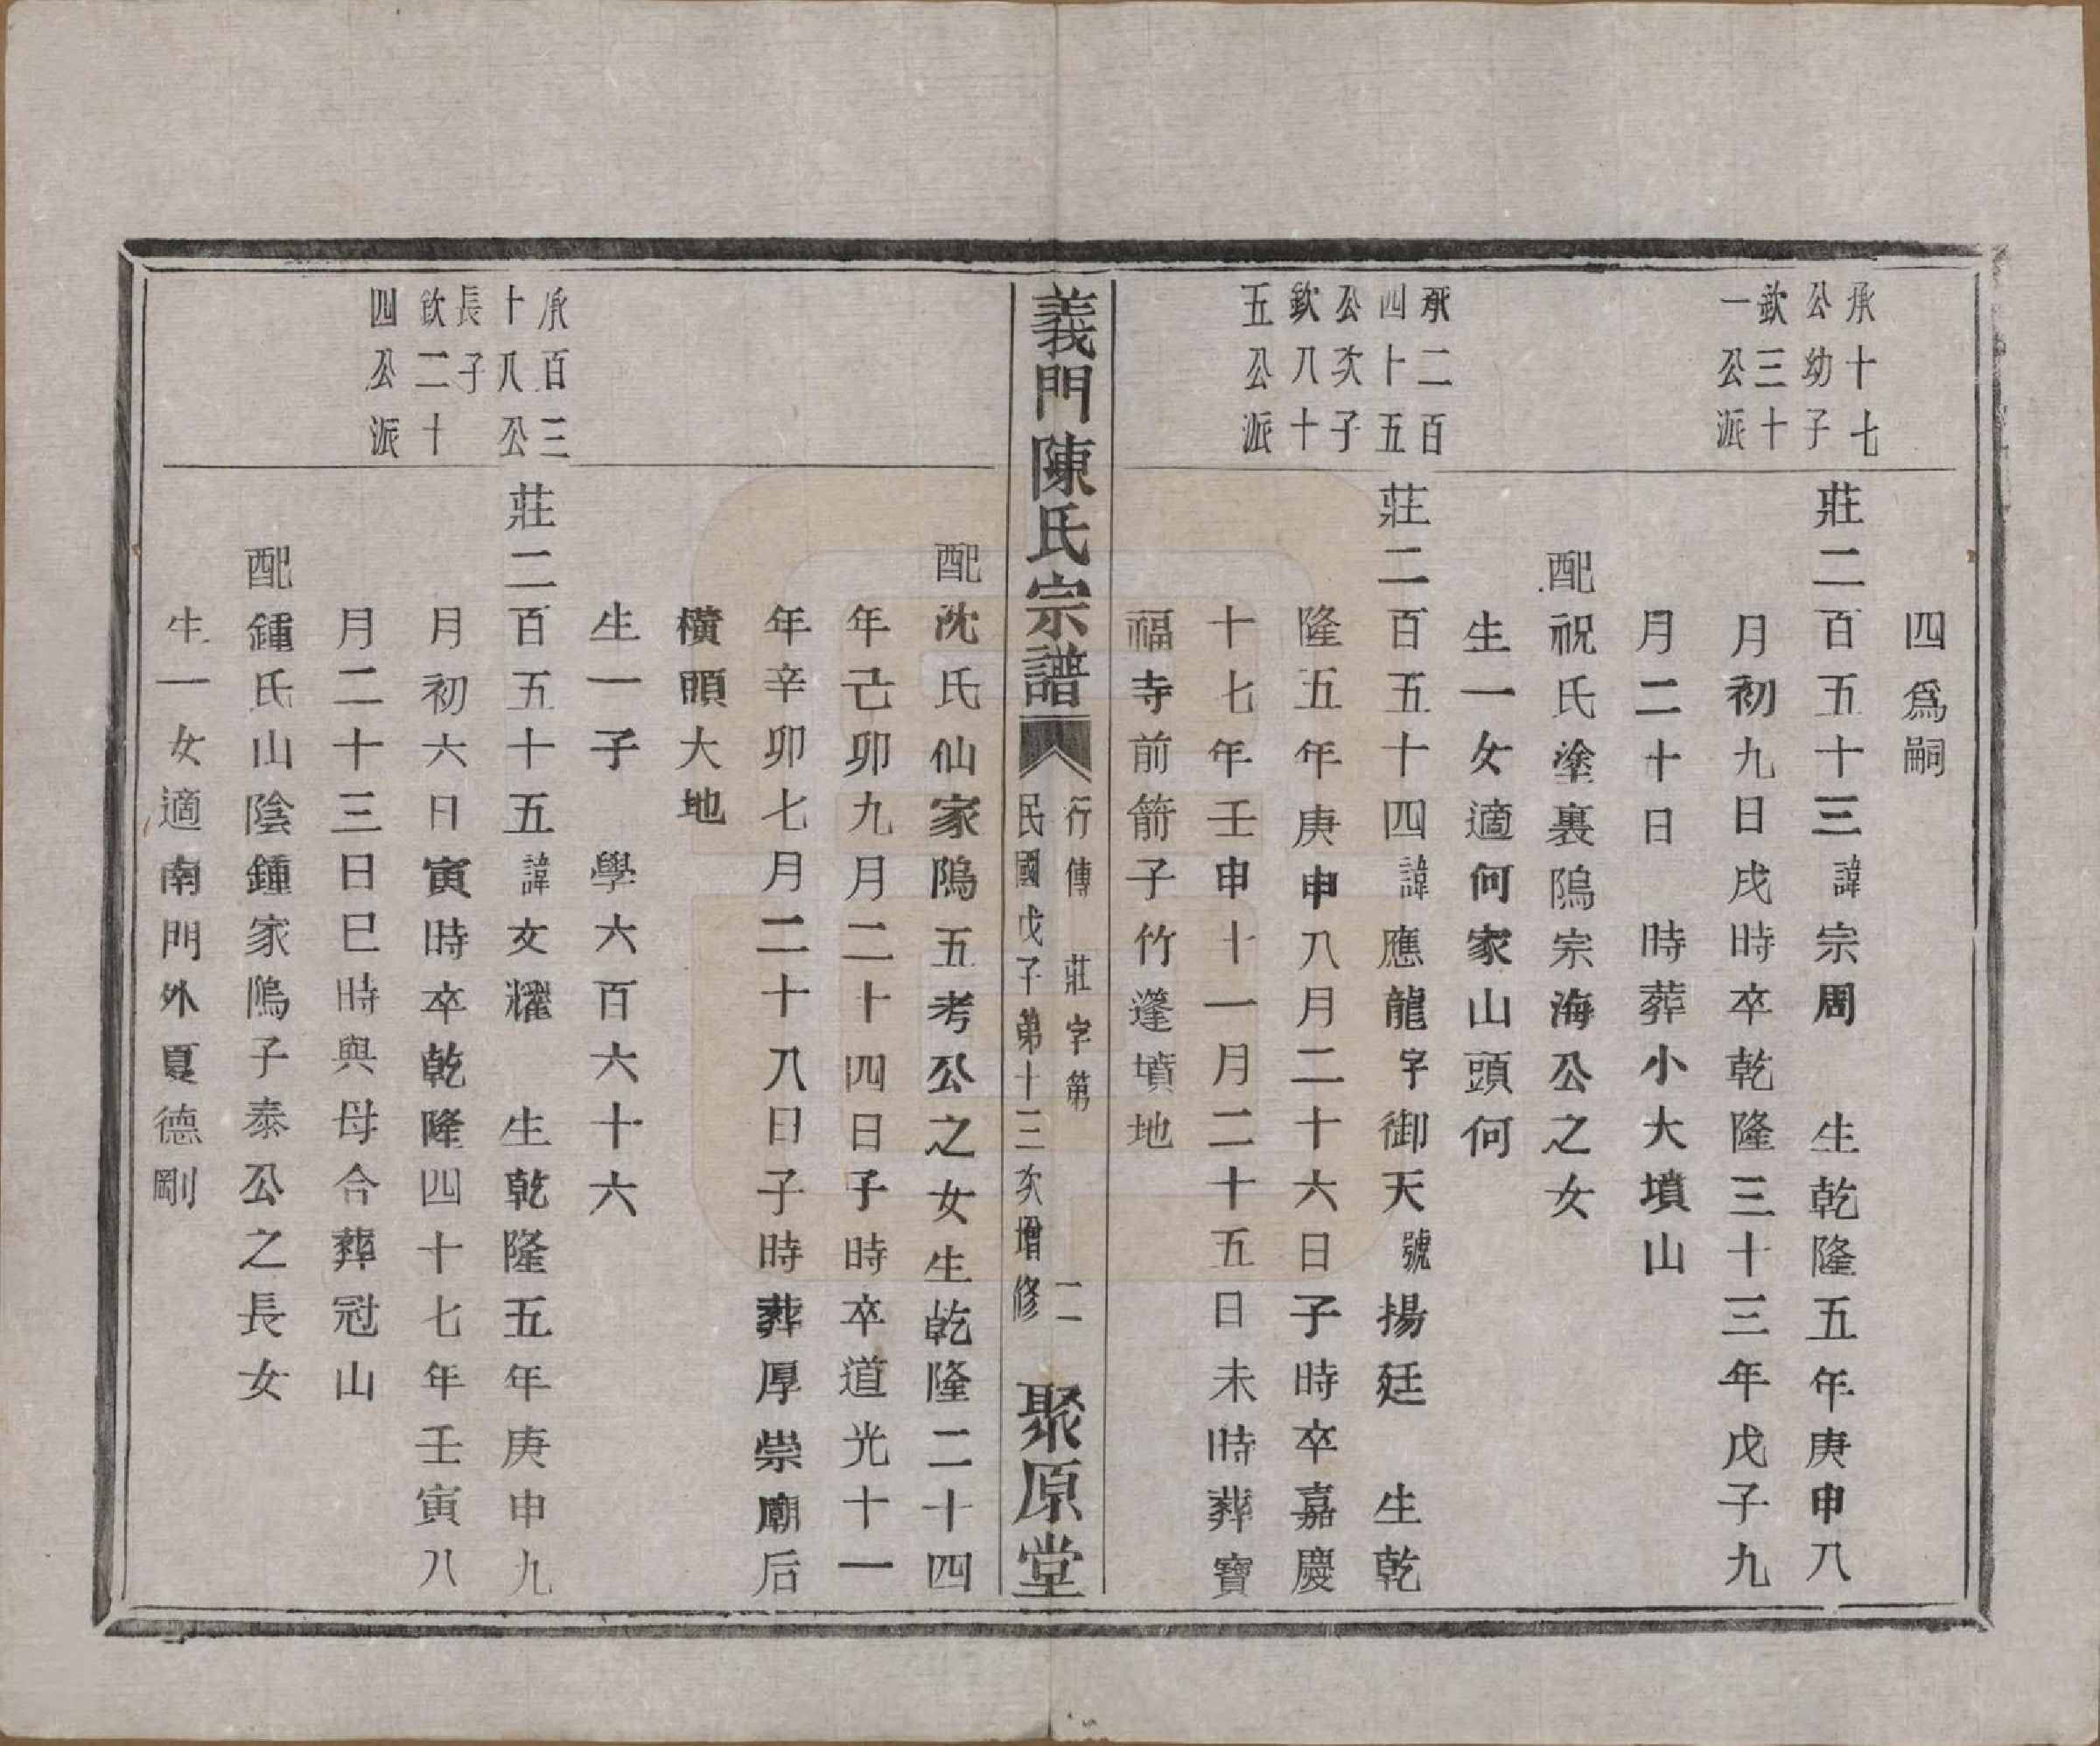 四爲嗣
承十七
公幼子
欽三十
一公派
莊二百五十三諱宗周　生乾隆五年庚申八
月初九日戌時卒乾隆三十三年戊子九
月二十日　時葬小大墳山
配祝氏塗裏隖宗海公之女
生一女適何家山頭何
承二百
四十五
公次子
欽八十
五公派
莊二百五十四諱應龍字御天號揚廷　生乾
隆五年庚申八月二十六日子時卒嘉慶
十七年壬申十一月二十五日未時葬寶
福寺前箭子竹蓬墳地
義門陳氏宗譜
行傳　莊字第　二
民國戊子第十三次增修
聚原堂
配沈氏仙家隖五考公之女生乾隆二十四
年己卯九月二十四日子時卒道光十一
年辛卯七月二十八日子時葬厚崇廟后
橫頭大地
生一子　學六百六十六
承百三
十八公
長子
欽二十
四公派
莊二百五十五諱文耀　生乾隆五年庚申九
月初六日寅時卒乾隆四十七年壬寅八
月二十三日巳時與母合葬冠山
配鍾氏山陰鍾家隖子泰公之長女
生一女適南門外夏德剛